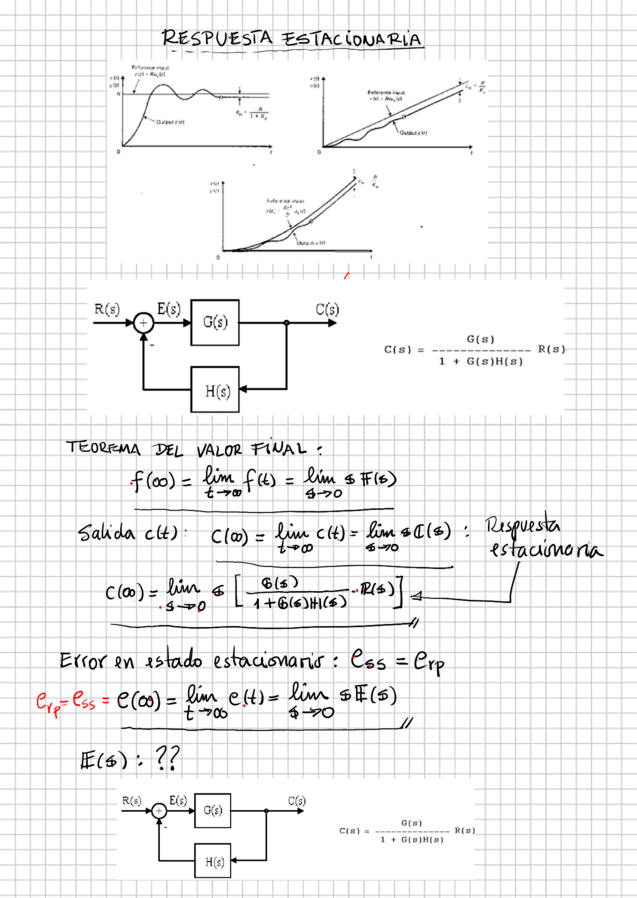 RESPUESTA ESTACIONARIA
Reference input
r(t) = Ru_s(t)
r(t)
c(t)
R
e_ss = R / (1 + K_p)
Output c(t)
0
t
r(t)
c(t)
Reference input
Output c(t)
0
t
Reference input
Output c(t)
0
t
R(s) E(s) C(s)
+
G(s)
-
H(s)
C(s) = G(s) / (1 + G(s)H(s)) R(s)
TEOREMA DEL VALOR FINAL :
f(∞) = lim t→∞ f(t) = lim s→0 s F(s)
Salida c(t) : C(∞) = lim t→∞ c(t) = lim s→0 s C(s) : Respuesta
estacionaria
C(∞) = lim s→0 s [ G(s) / (1+G(s)H(s)) · R(s) ]
Error en estado estacionario : e_ss = e_rp
e_rp = e_ss = e(∞) = lim t→∞ e(t) = lim s→0 s E(s)
E(s) : ??
R(s) E(s) C(s)
+
G(s)
-
H(s)
C(s) = G(s) / (1 + G(s)H(s)) R(s)